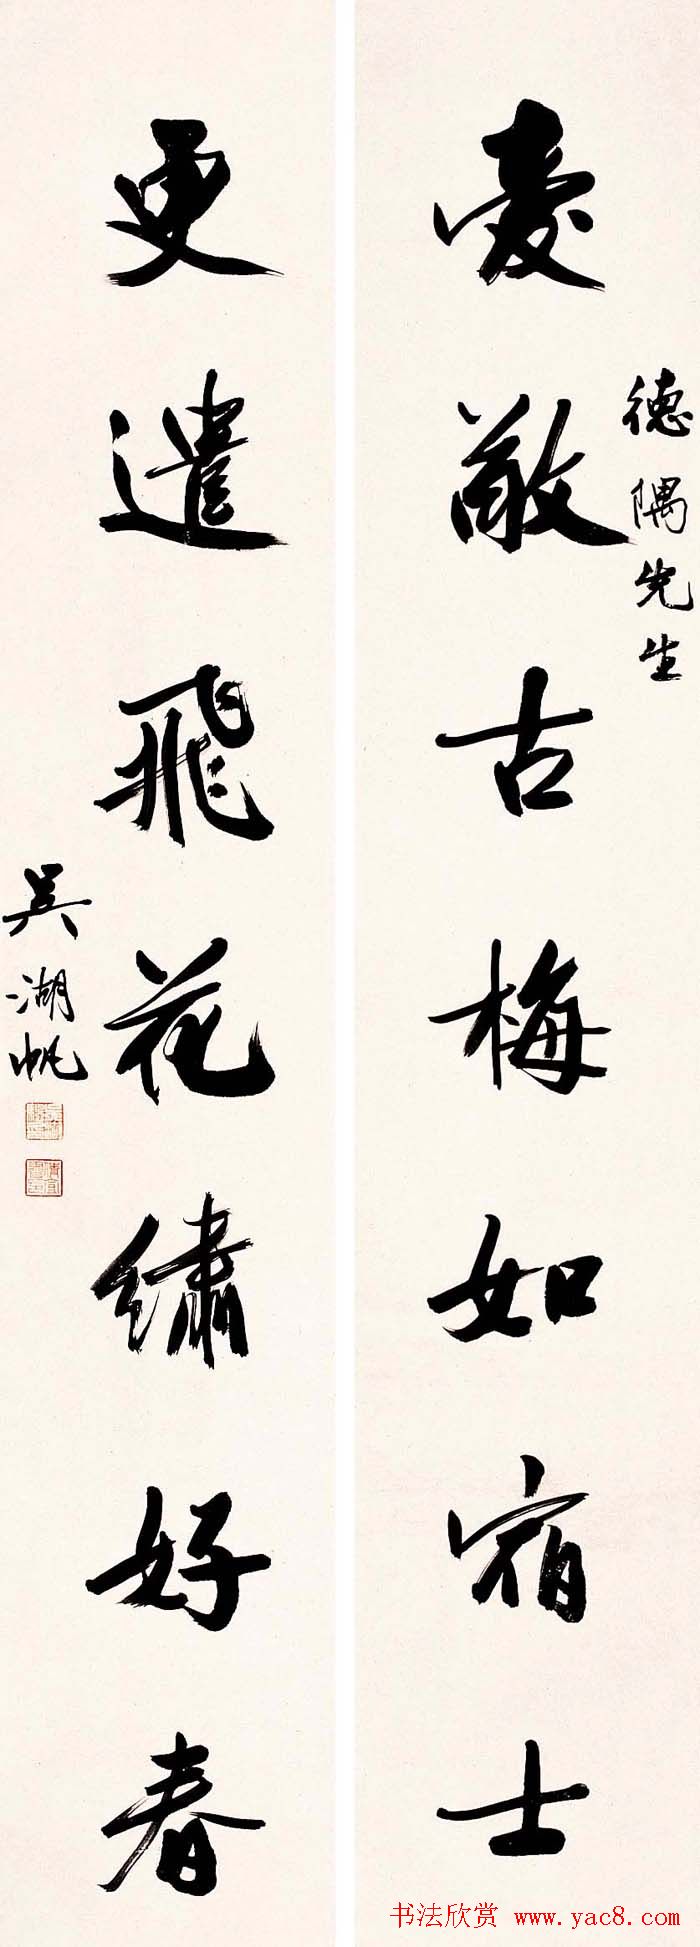 德隅先生
愛敬古梅如宿士
更遣飛花繡好春
吳湖帆
书法欣赏 www.yac8.com